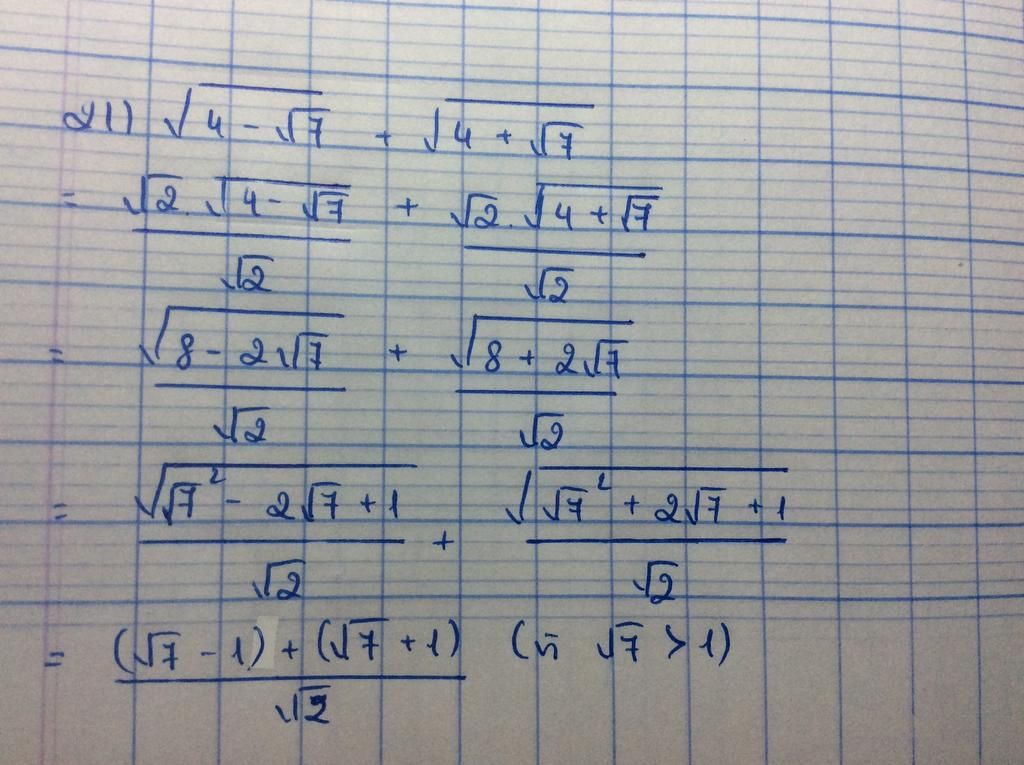 21) √(4 - √7) + √(4 + √7)
= (√2 . √(4 - √7))/√2 + (√2 . √(4 + √7))/√2
= √(8 - 2√7)/√2 + √(8 + 2√7)/√2
= √(√7² - 2√7 + 1)/√2 + √(√7² + 2√7 + 1)/√2
= ((√7 - 1) + (√7 + 1))/√2 (vì √7 > 1)